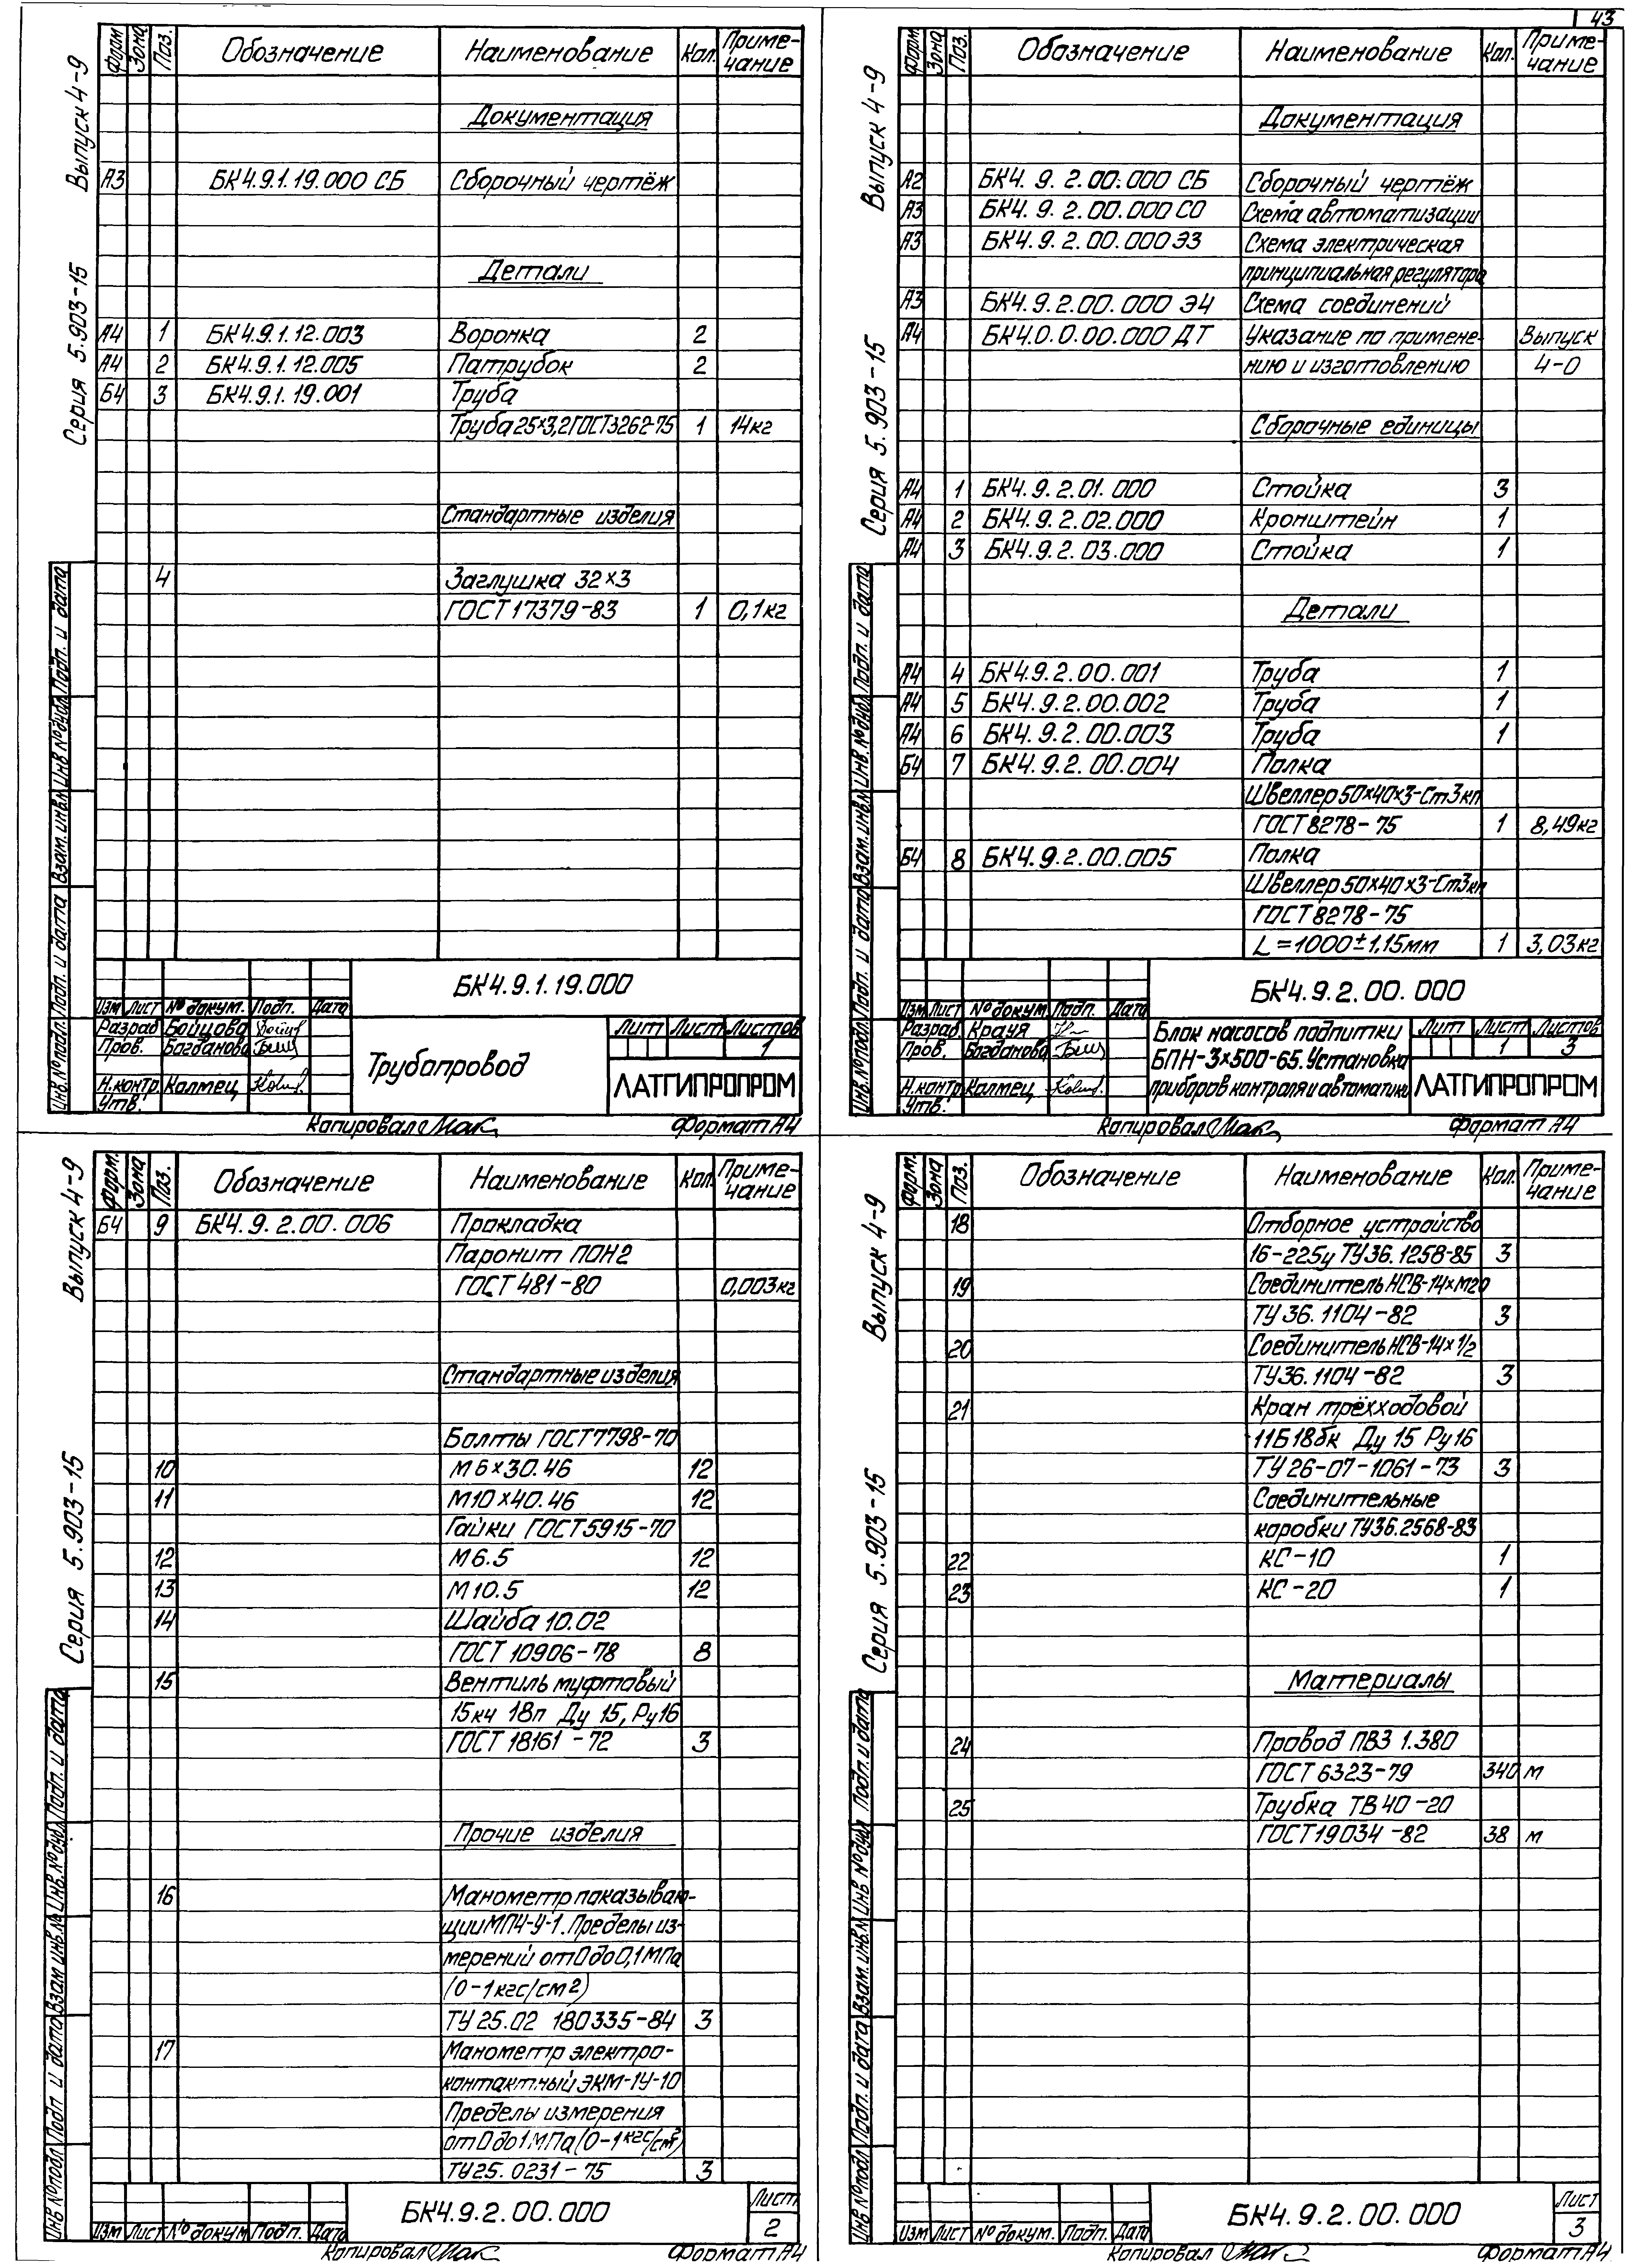 43
Выпуск 4-9
Серия 5.903-15
Форм Зона Поз. Обозначение Наименование Кол. Приме-
чание
Документация
А3 БК4.9.1.19.000 СБ Сборочный чертёж
Детали
А4 1 БК4.9.1.12.003 Воронка 2
А4 2 БК4.9.1.12.005 Патрубок 2
Б4 3 БК4.9.1.19.001 Труба
Труба 25×3,2 ГОСТ3262-75 1 14кг
Стандартные изделия
4 Заглушка 32×3
ГОСТ 17379-83 1 0,1кг
Инв.№подл. Подп. и дата Взам.инв.№ Инв.№дубл. Подп. и дата
БК4.9.1.19.000
Изм Лист № докум. Подп. Дата
Разраб Бойцова
Пров. Богданова
Н.контр. Калтец
Утв.
Трубопровод
Лит Лист Листов
1
ЛАТГИПРОПРОМ
Копировал Формат А4
Выпуск 4-9
Серия 5.903-15
Форм Зона Поз. Обозначение Наименование Кол. Приме-
чание
Документация
А2 БК4.9.2.00.000 СБ Сборочный чертёж
А3 БК4.9.2.00.000 СО Схема автоматизации
А3 БК4.9.2.00.000 ЭЗ Схема электрическая
принципиальная регулятора
А3 БК4.9.2.00.000 Э4 Схема соединений
А4 БК4.0.0.00.000 ДТ Указание по примене- Выпуск
нию и изготовлению 4-0
Сборочные единицы
А4 1 БК4.9.2.01.000 Стойка 3
А4 2 БК4.9.2.02.000 Кронштейн 1
А4 3 БК4.9.2.03.000 Стойка 1
Детали
А4 4 БК4.9.2.00.001 Труба 1
А4 5 БК4.9.2.00.002 Труба 1
А4 6 БК4.9.2.00.003 Труба 1
Б4 7 БК4.9.2.00.004 Полка
Швеллер 50×40×3-Ст3кп
ГОСТ 8278-75 1 8,49кг
Б4 8 БК4.9.2.00.005 Полка
Швеллер 50×40×3-Ст3кп
ГОСТ 8278-75
L=1000±1,15мм 1 3,03кг
Инв.№подл. Подп. и дата Взам.инв.№ Инв.№дубл. Подп. и дата
БК4.9.2.00.000
Изм Лист № докум. Подп. Дата
Разраб. Крауя
Пров. Богданова
Н.контр Калтец
Утв.
Блок насосов подпитки
БПН-3×500-65. Установка
приборов контроля и автоматики
Лит Лист Листов
1 3
ЛАТГИПРОПРОМ
Копировал Формат А4
Выпуск 4-9
Серия 5.903-15
Форм. Зона Поз. Обозначение Наименование Кол. Приме-
чание
Б4 9 БК4.9.2.00.006 Прокладка
Паронит ПОН2
ГОСТ 481-80 0,003кг
Стандартные изделия
Болты ГОСТ 7798-70
10 М6×30.46 12
11 М10×40.46 12
Гайки ГОСТ 5915-70
12 М6.5 12
13 М10.5 12
14 Шайба 10.02
ГОСТ 10906-78 8
15 Вентиль муфтовый
15кч 18п Ду 15, Ру16
ГОСТ 18161-72 3
Прочие изделия
16 Манометр показываю-
щий МП4-У-1. Пределы из-
мерений от 0 до 0,1 МПа
(0-1кгс/см2)
ТУ 25.02 180335-84 3
17 Манометр электро-
контактный ЭКМ-1У-10
Пределы измерения
от 0 до 1 МПа (0-1кгс/см²)
ТУ25.0231-75 3
Инв №подл Подп и дата Взам инв.№ Инв.№дубл. Подп. и дата
БК4.9.2.00.000
Изм Лист № докум Подп. Дата
Лист
2
Копировал Формат А4
Выпуск 4-9
Серия 5.903-15
Форм. Зона Поз. Обозначение Наименование Кол. Приме-
чание
18 Отборное устройство
16-225у ТУ36.1258-85 3
19 Соединитель НСВ-14×М20
ТУ 36.1104-82 3
20 Соединитель НСВ-14×1/2
ТУ36.1104-82 3
21 Кран трёхходовой
11Б18бк Ду 15 Ру16
ТУ 26-07-1061-73 3
Соединительные
коробки ТУ36.2568-83
22 КС-10 1
23 КС-20 1
Материалы
24 Провод ПВ3 1.380
ГОСТ 6323-79 340 м
25 Трубка ТВ 40-20
ГОСТ 19034-82 38 м
Инв №подл Подп. и дата Взам.инв.№ Инв №дубл Подп. и дата
БК4.9.2.00.000
Изм Лист № докум. Подп. Дата
Лист
3
Копировал Формат А4